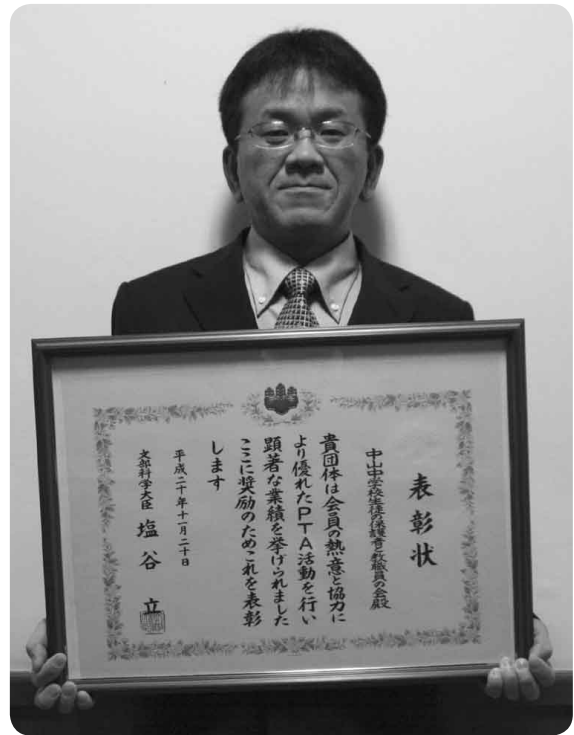 表彰状
中山中学校生徒の保護者と教職員の会殿
貴団体は会員の熱意と協力に
より優れたPTA活動を行い
顕著な業績を挙げられました
ここに奨励のためこれを表彰
します
平成二十年十一月二十日
文部科学大臣 塩谷 立